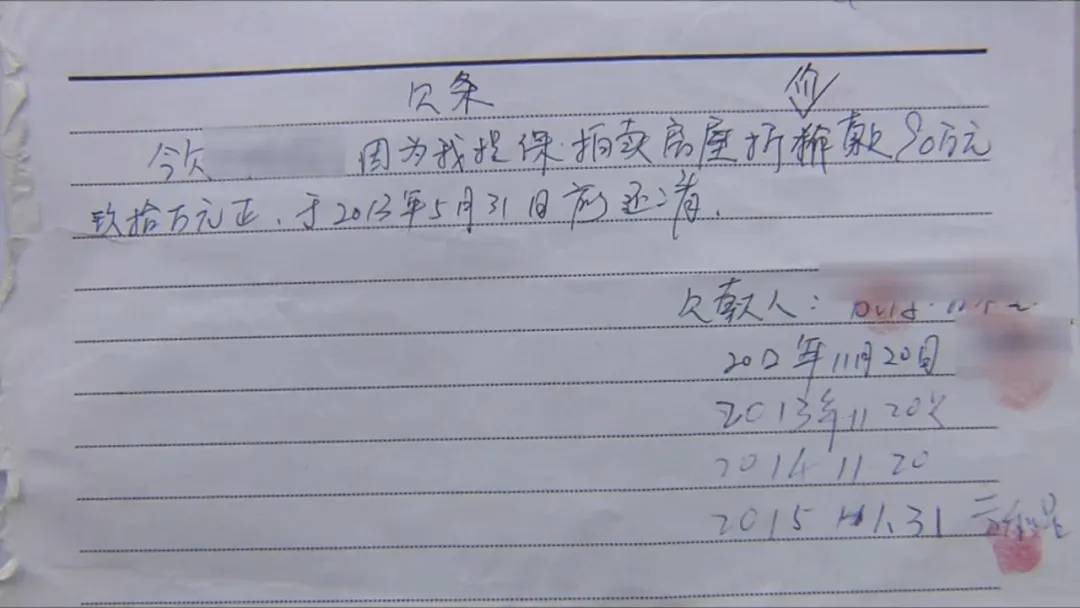 欠条
价
今欠 因为我提保.拍卖房屋折 款90万元
玖拾万元正、于2013年5月31日前还清.
欠款人:
2012年11月20日
2013年11.20
2014 11 20
2015 1.31